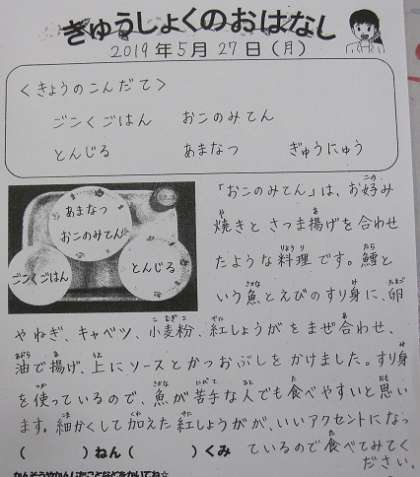 きゅうしょくのおはなし
2019年5月27日(月)
<きょうのこんだて>
ごこくごはん おこのみてん
とんじる あまなつ ぎゅうにゅう
あまなつ
おこのみてん
ごこくごはん
とんじる
「おこのみてん」は、お好み
焼きとさつま揚げを合わせ
たような料理です。鱈と
いう魚とえびのすり身に、卵
やねぎ、キャベツ、小麦粉、紅しょうがをまぜ合わせ、
油で揚げ、上にソースとかつおぶしをかけました。すり身
を使っているので、魚が苦手な人でも食べやすいと思い
ます。細かくして加えた紅しょうがが、いいアクセントになっ
ているので食べてみてく
ださい。
( )ねん( )くみ